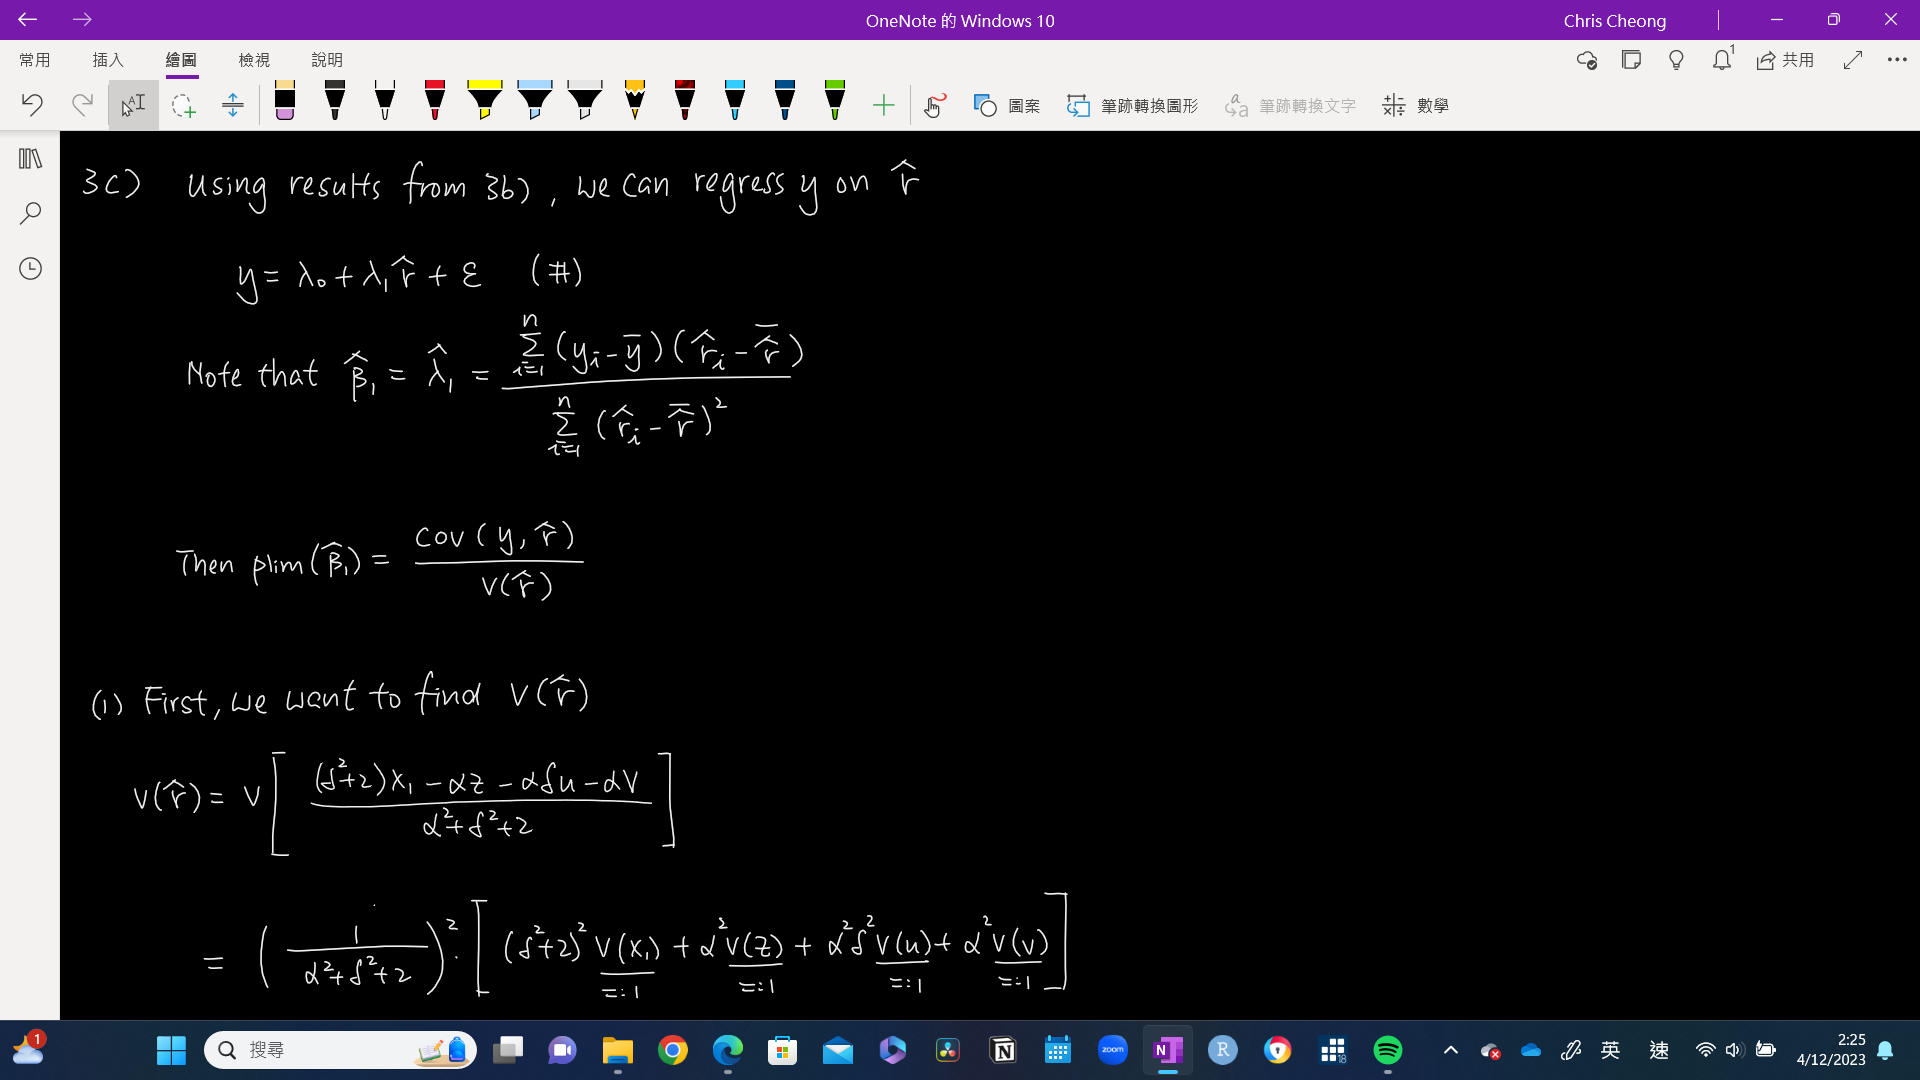 OneNote 的 Windows 10
Chris Cheong
常用 插入 繪圖 檢視 說明
1
共用
圖案 筆跡轉換圖形 筆跡轉換文字 數學
3c) Using results from 3b), we can regress y on r̂
y = λ₀ + λ₁r̂ + ε (#)
Note that β̂₁ = λ̂₁ = \frac{\sum_{i=1}^{n} (y_i - \bar{y})(\hat{r}_i - \bar{\hat{r}})}{\sum_{i=1}^{n} (\hat{r}_i - \bar{\hat{r}})^2}
Then plim(β̂₁) = \frac{cov(y, \hat{r})}{V(\hat{r})}
(1) First, we want to find V(r̂)
V(r̂) = V[ \frac{(δ²+2)x₁ - αz - αδu - αv}{α²+δ²+2} ]
= ( \frac{1}{α²+δ²+2} )² · [ (δ²+2)² V(x₁) + α² V(z) + α²δ² V(u) + α² V(v) ]
=:1 =:1 =:1 =:1
1
搜尋
zoom
N
N
R
18
英
速
2:25
4/12/2023